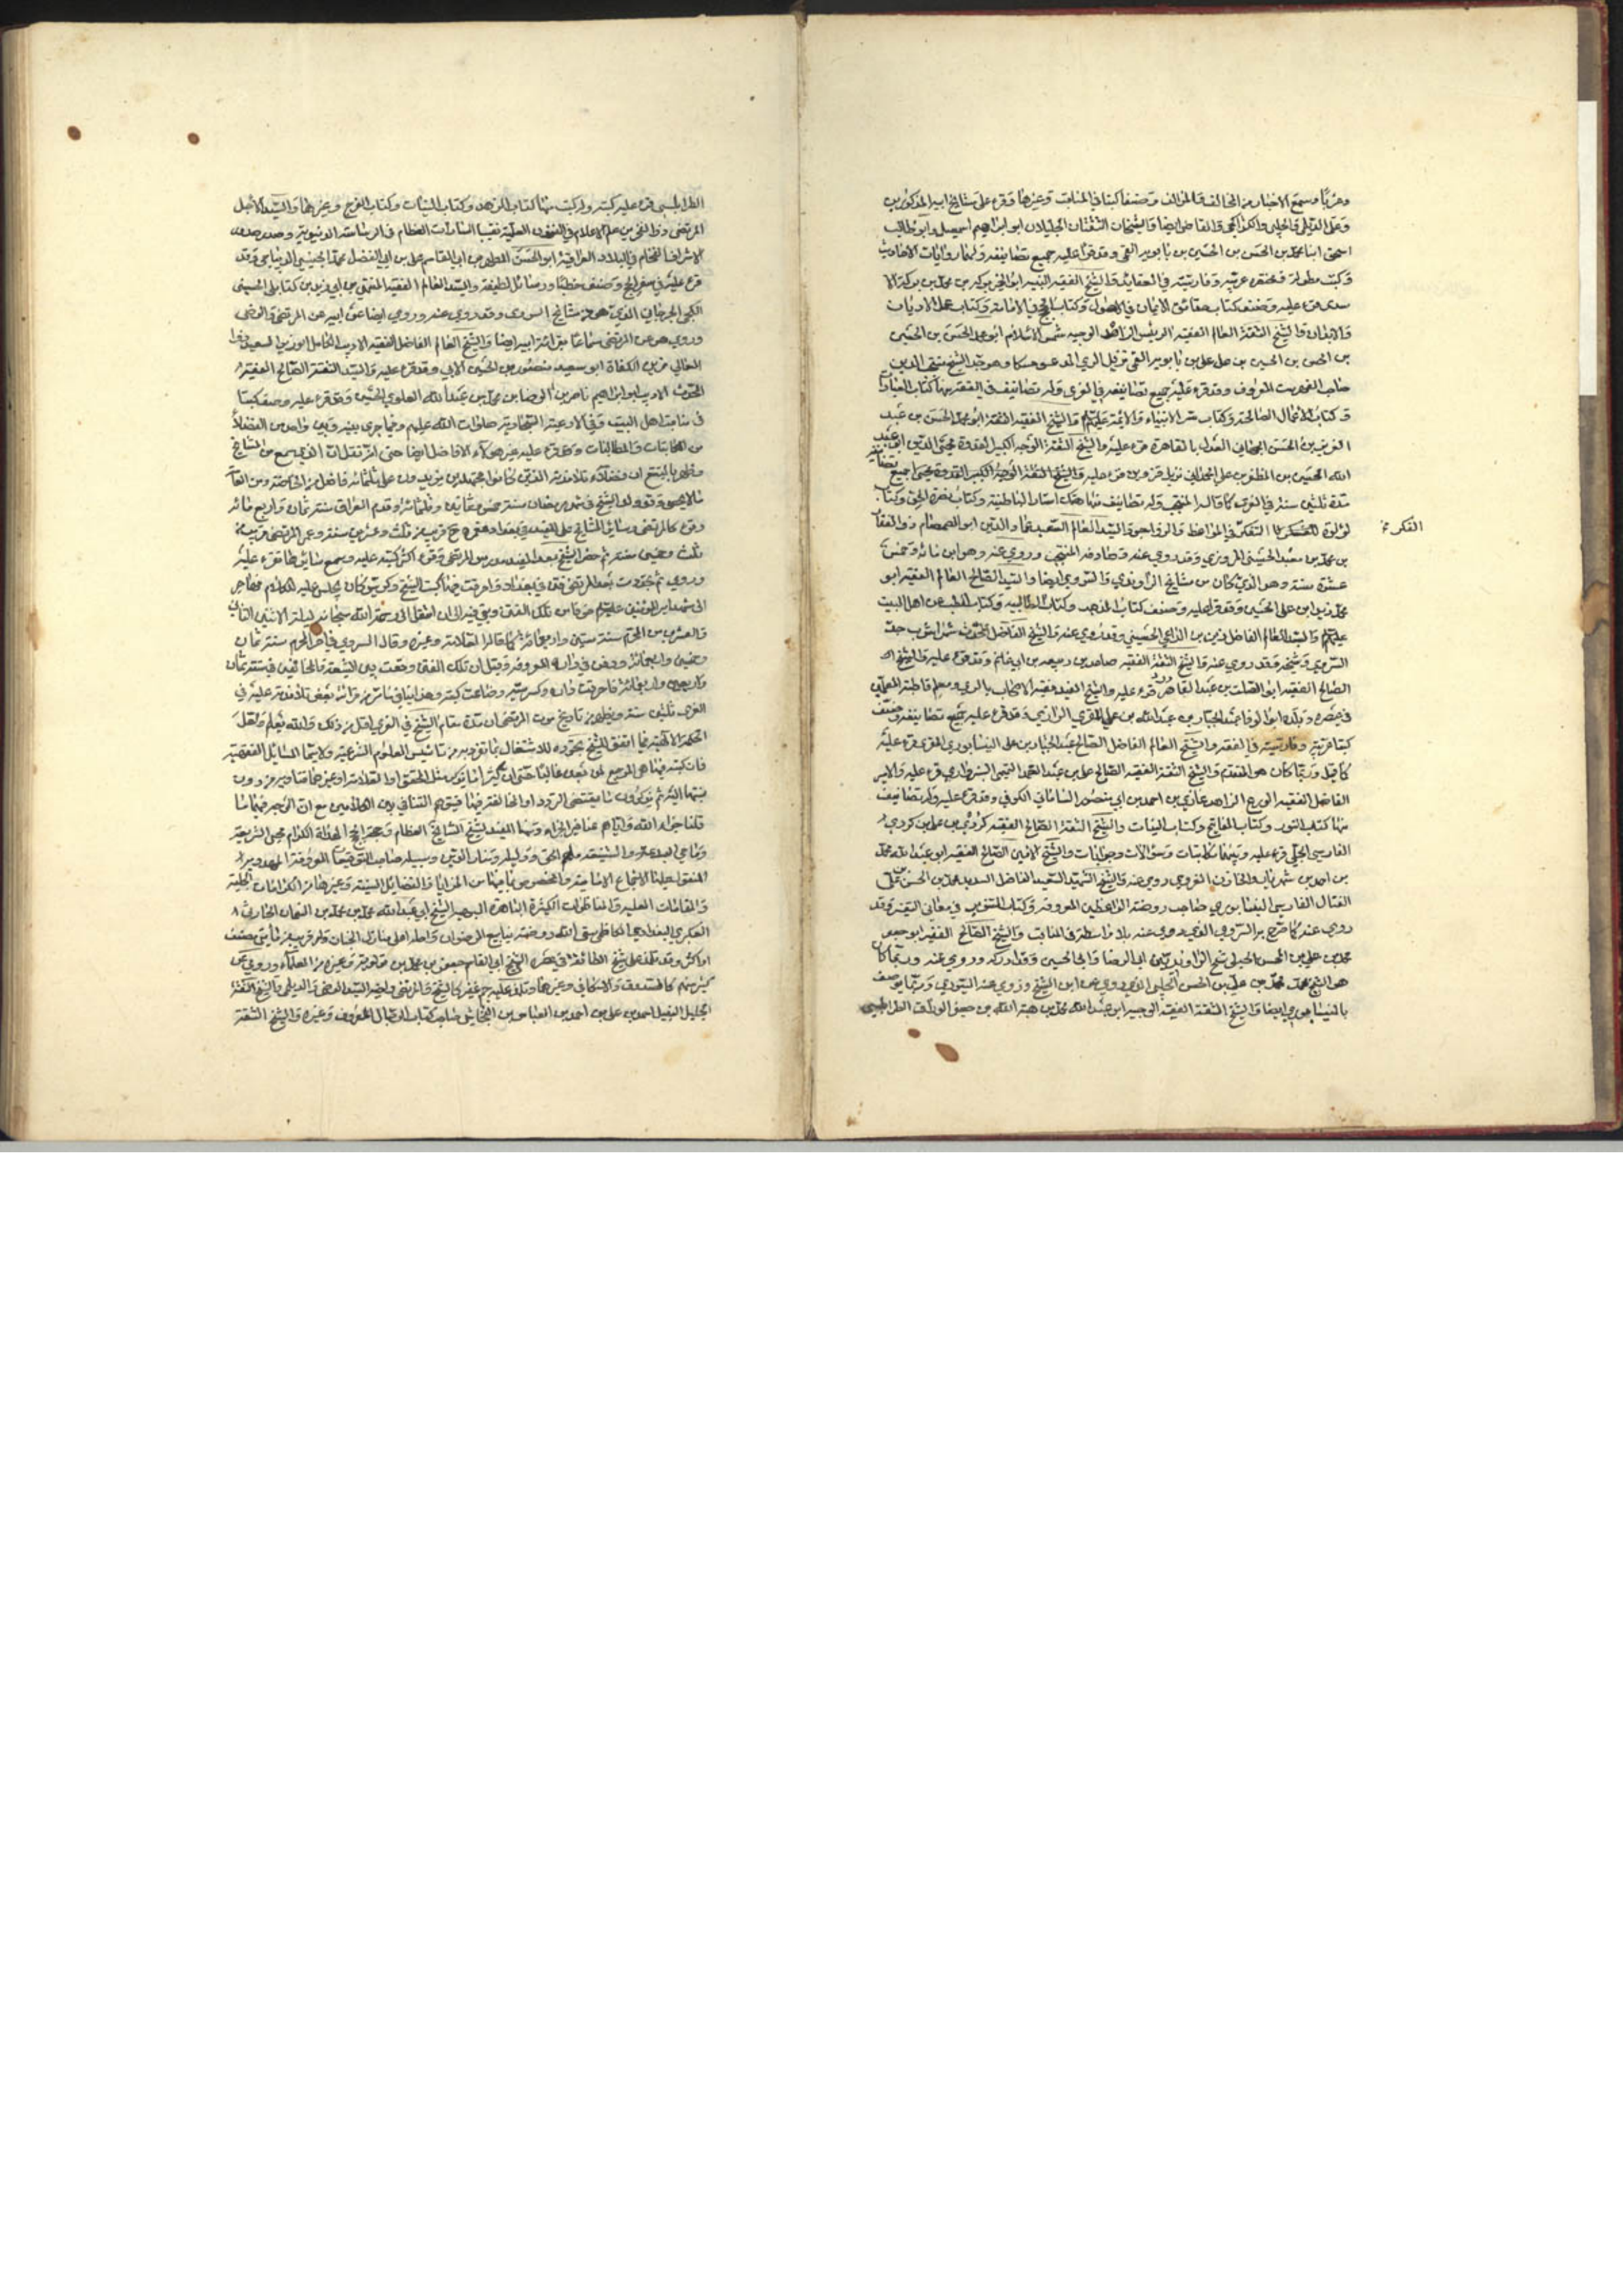 وعربا وسمع الاخبار من المخالف والمؤالف وصنف كتبا في المناقب وغيرها وقرء على مشايخ ابيه المذكورين
وعلى الديلمي والحلبي والكراجكي والقاضي ايضا والشيخان الثقتان الجليلان ابو ابراهيم اسمعيل وابو طالب
اسحق ابنا محمد بن الحسن بن الحسين بن بابويه القمي وقد قرءا عليه جميع تصانيفه ولهما روايات الاحاديث
وكتب مطولة ومختصرة عربية وفارسية في العقايد والشيخ الفقيه النبيه ابو الخير بركة بن محمد بن بركة الا
سدي قرء عليه وصنف كتاب حقائق الايمان في الاصول وكتاب الحجج في الامامة وكتاب عمل الاديان
والابدان والشيخ الثقة العالم الفقيه الرئيس الوجيه شمس الاسلام ابو محمد الحسن بن الحسين
بن الحسن بن الحسين بن علي بن بابويه القمي نزيل الري المدعو حسكا وهو جد الشيخ منتجب الدين
صاحب الفهرست المعروف وقد قرء عليه جميع تصانيفه في الغري وله تصانيف في الفقه منها كتاب العبادات
وكتاب الاعمال الصالحة وكتاب سير الانبياء والائمة عليهم والشيخ الفقيه الثقة ابو محمد الحسن بن عبد
العزيز بن الحسن الجهاني العدل بالقاهرة قرء عليه والشيخ الثقة الوجه الكبير القدوة محيي الدين ابو عبد
الله الحسين بن المظفر بن علي الحمداني نزيل قزوين قرء عليه جميع تصانيفه
مدة ثلثين سنة في الغري كما قال المنتجب وله تصانيف منها هتك استار الباطنية وكتاب نصرة الحق وكتاب
لؤلؤة التفكر في المواعظ والزواجر والسيد العالم السعيد عماد الدين ابو الصمصام ذو الفقار
الفكر
بن محمد بن معبد الحسيني المروزي وقد روى عنه وصادفه المنتجب وروى عنه وهو ابن مائة وخمس
عشرة سنة وهو الذي كان من مشايخ الراوندي والسروي ايضا والسيد الصالح العالم الفقيه ابو
محمد زيد بن علي الحسيني وقد قرء عليه وصنف كتاب المذهب وكتاب الطالبية وكتاب الطب عن اهل البيت
عليهم والسيد العالم الفاضل زين بن الداعي الحسيني وقد روى عنه والشيخ الفاضل المحدث شهراشوب جد
السروي وشيخه وقد روى عنه والشيخ الثقة الفقيه صاعد بن ربيعة بن ابي غانم وقد قرء عليه والشيخ
الصالح الفقيه ابو الصلت بن عبد القادر قرء عليه والشيخ المفيد فقيه الاصحاب بالري
في عصره وبلده ابو الوفا عبد الجبار بن عبد الله بن علي المقري الرازي وقد قرء عليه جميع تصانيفه وصنف
كتبا عربية وفارسية في الفقه والشيخ العالم الفاضل الصالح عبد الجبار بن علي النيسابوري المقري قرء عليه
كما قيل وربما كان هو المتقدم والشيخ الثقة الفقيه الصالح علي بن عبد الصمد التميمي السبزواري قرء عليه والامير
الفاضل الفقيه الورع الزاهد غازي بن احمد بن ابي منصور الساماني الكوفي وقد قرء عليه وله تصانيف
منها كتاب النور وكتاب المفاتيح وكتاب البينات والشيخ الثقة الصالح الفقيه كردي بن عكبر بن كردي
الفارسي الحلبي قرء عليه وبينهما مكاتبات وسؤالات وجوابات والشيخ الامين الصالح الفقيه ابو عبد الله محمد
بن احمد بن شهريار الخازن الغروي روى عنه والشيخ الشهيد السعيد الفاضل السديد محمد بن الحسن بن علي
الفتال الفارسي النيسابوري صاحب روضة الواعظين المعروفة وكتاب التنوير في معاني التفسير وقد
روى عنه كما صرح به السروي الذي روى عنه بلا واسطة في المناقب والشيخ الصالح الفقيه ابو جعفر
محمد بن علي بن الحسن الحلبي شيخ الراوندييّن ابي الرضا وابي الحسين وقد ادركه وروى عنه وربما كان
هو الشيخ محمد بن علي بن الحسن الحلبي الذي روى عن ابن الشيخ وروى عنه السروي وربما يوصف
بالنيسابوري ايضا والشيخ الثقة الفقيه الوجيه ابو عبد الله محمد بن هبة الله بن جعفر الوراق الطرابلسي
الطرابلسي قرء عليه كتبه وله كتب منها كتاب الزهد وكتاب النيات وكتاب الفرج وغيرها والسيد الاجل
المرتضى ذو الفخرين علم الاعلام في الفنون العلمية نقيب السادات العظام في الرياسة الدنيوية وصدر صدور
الاشراف الفخام في البلاد العراقية ابو الحسن المطهر بن ابي القاسم علي بن ابي الفضل محمد الحسيني الديباجي وقد
قرء عليه في سفر الحج وصنف خطبا ورسائل لطيفة والسيد العالم الفقيه المنتهى بن ابي زيد بن كتابكي الحسيني
الكجي الجرجاني الذي هو من مشايخ السروي وقد روى عنه وروى ايضا عن ابيه عن المرتضى والرضي
وروى هو عن المرتضى سماعا بقرائة ابيه ايضا والشيخ العالم الفاضل الفقيه الاديب الكامل الوزير السعيد ذو
المعالي زين الكفاة ابو سعيد منصور بن الحسين الآبي وقد قرء عليه والسيد الثقة الصالح الفقيه
المحدث الاديب ابو ابراهيم ناصر بن الرضا بن محمد بن عبد الله العلوي الحسيني وقد قرء عليه وصنف كتبا
في مناقب اهل البيت وفي الادعية السجادية صلوات الله عليهم وفيما جرى بينه وبين واحد من الفضلاء
من المكاتبات والمطالبات وقد قرء عليه غير هؤلاء الافاضل ايضا حتى انه نقل ان الذي سمع من المشايخ
وظهر بالتتبع ان فضلاء تلامذته الذين كانوا مجتهدين يزيدون على ثلثمائة فاضل من الخاصة ومن العامة
ما لا يحصى وقد ولد الشيخ في شهر رمضان سنة خمس وثمانين وثلثمائة وقدم العراق سنة ثمان واربع مائة
وقرء كالمرتضى وسائر المشايخ على المفيد في بغداد وهو ح قريب من ثلث وعشرين سنة وعمر المرتضى قريب من
ثلث وخمسين سنة ثم حضر الشيخ بعد المفيد درس المرتضى وقرء اكثر كتبه عليه وسمع سائرها تقرء عليه
وروى ثم حدثت بعد المرتضى فتن في بغداد واحرقت فيها كتب الشيخ وكرسي كان يجلس عليه للكلام فهاجر
الى مشهد امير المؤمنين عليه خوفا من تلك الفتن وبقي فيه الى ان انتقل الى رحمة الله سبحانه ليلة الاثنين الثاني
والعشرين من المحرم سنة ستين واربعمائة كما قال العلامة وغيره وقال السروي في آخر المحرم سنة ثمان
وخمسين واربعمائة ودفن في داره المعروفة وقيل ان تلك الفتن وقعت بين الشيعة والمخالفين في سنة ثمان
واربعين واربعمائة فاحرقت داره وكرسيه وضاعت كتبه وهذا ينافي ما مر من قرائة بعض تلامذته عليه في
الغري ثلثين سنة ويظهر من تاريخ موت المرتضى ان مدة مقام الشيخ في الغري اقل من ذلك والله يعلم ولعل
الحكمة الالهية فيما اتفق للشيخ تجرده للاشتغال بما تفرد به من تاسيس العلوم الشرعية ولا سيما المسائل الفقهية
فان كتبه فيها هي المرجع لمن بعده غالبا حتى ان كثيرا ما يذكر مثل المحقق او العلامة او غيرهما فتاويه من دون
نسبتها اليه ثم يذكرون ما يقتضي التردد او المخالفة فيها فيتوهم التنافي بين الكلامين مع ان الوجه فيهما ما
قلنا جزاه الله واياهم عنا خير الجزاء ومنها المفيد لشيخ المشايخ العظام وحجة الحجج الهداة الكرام محيي الشريعة
وماحي البدعة والشنيعة ملهم الحق ودليله ومنار الدين وسبيله صاحب التوقيعات المعروفة المهدوية
المنقول عليها الاجماع الامامية والمخصوص بما فيها من المزايا والفضائل السنية وغيرها من الكرامات الجلية
والمقامات العلية والمناظرات الكثيرة الباهرة البهية الشيخ ابي عبد الله محمد بن محمد بن النعمان الحارثي
العكبري البغدادي الحافظ سقى الله روضته ينابيع الرضوان واحله اعلى منازل الجنان وله قريب من مأتي مصنف
او اكثر وقد تلمذ على شيخ الطائفة في عصره الشيخ ابي القاسم جعفر بن محمد بن قولويه وغيره من العلماء وروى عن
كثير منهم كالصدوق والاسكافي وغيرهما وتلمذ عليه جم غفير كالشيخ والمرتضى واخيه السيد الرضي والديلمي والشيخ الثقة
الجليل النبيل احمد بن علي بن احمد بن العباس بن النجاشي صاحب كتاب الرجال المعروف وغيره والشيخ الثقة